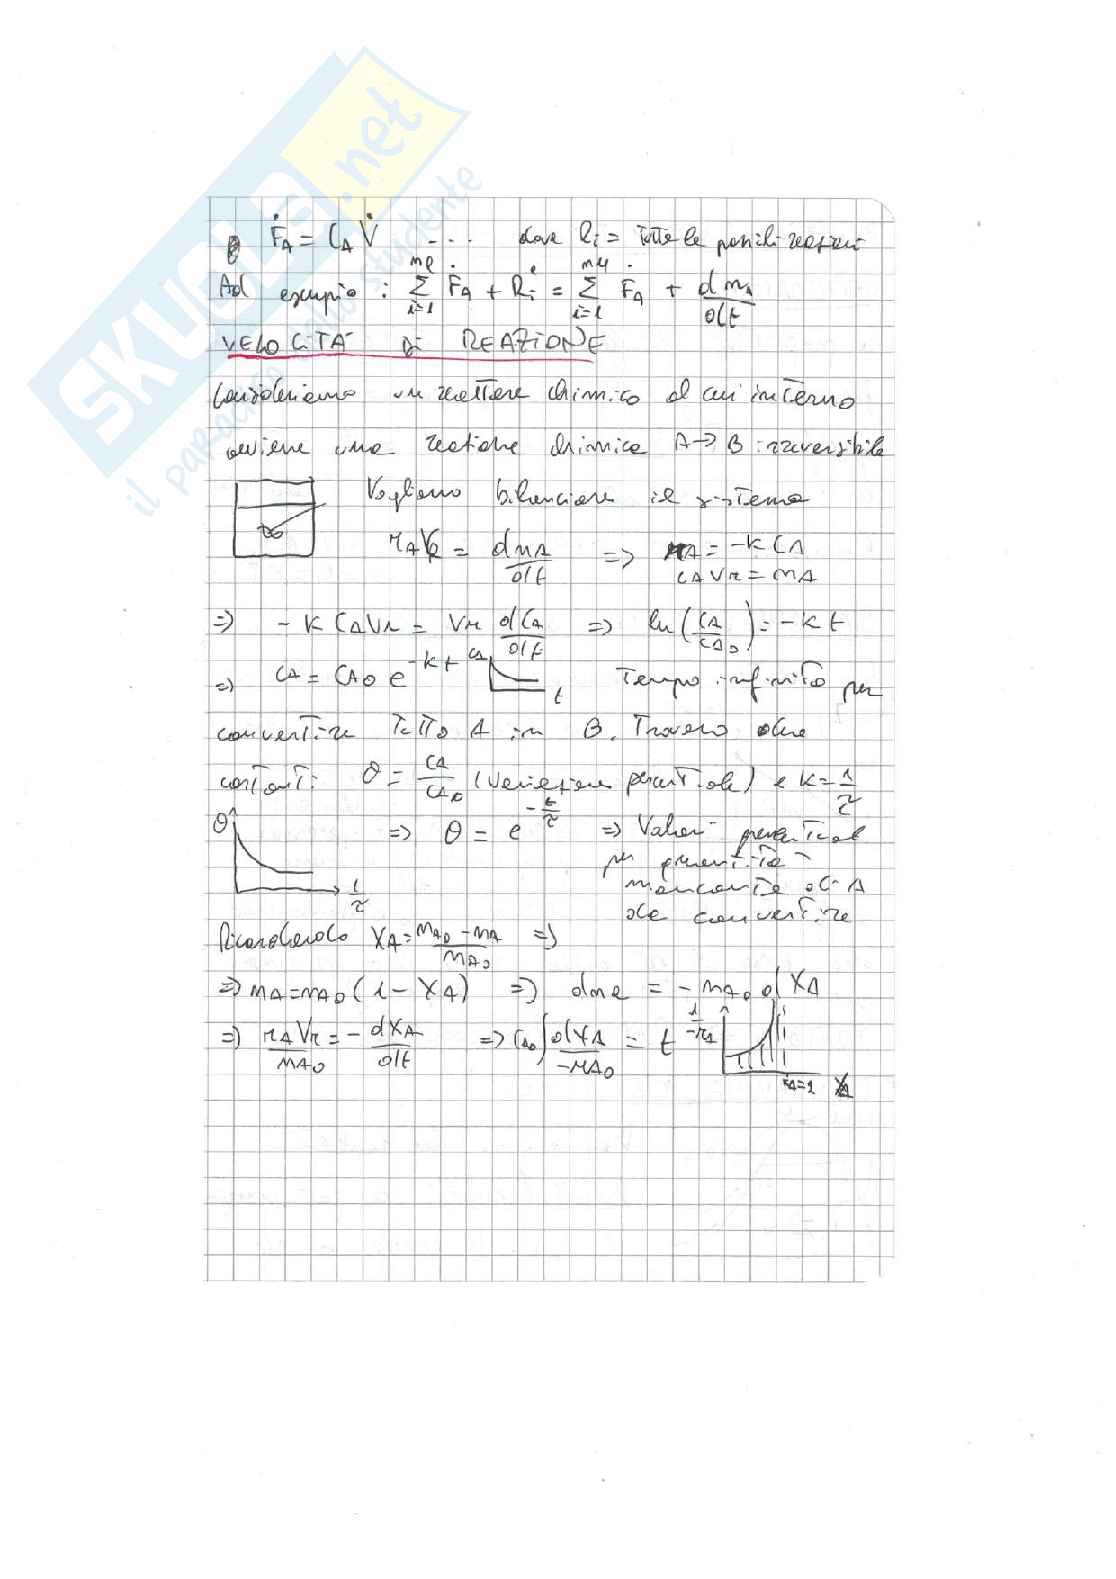 SKUOLA.net
il paradiso dello studente
e Ḟ_A = C_A V̇ ... dove R_i = tutte le possibili reazioni
Ad esempio : Σ_{i=1} Ḟ_A + Ṙ_i = Σ_{i=1} Ḟ_A + d n_A/dt
VELOCITÀ DI REAZIONE
Consideriamo un reattore chimico al cui interno
avviene una reazione chimica A → B irreversibile
Vogliamo bilanciare il sistema
r_A V_R = d n_A/dt => r_A = -K C_A
C_A V_r = n_A
=> - K C_A V_r = V_r d C_A/dt => ln (C_A/C_A0) = - K t
=> C_A = C_A0 e^{-Kt} C_A t Tempo infinito per
convertire tutto A in B. Trovero due
costanti θ = C_A/C_A0 (Variazione percentuale) e K = 1/τ
θ t/τ => θ = e^{-t/τ} => Valori percentual
per quantità
mancante di A
da convertire
Ricordando X_A = n_A0 - n_A / n_A0 =>
=> n_A = n_A0 (1 - X_A) => dn_A = - n_A0 d X_A
=> r_A V_r / n_A0 = - dX_A/dt => C_A0 ∫ dX_A / -r_A0 = t 1/-r_A
X_A=1 X_A